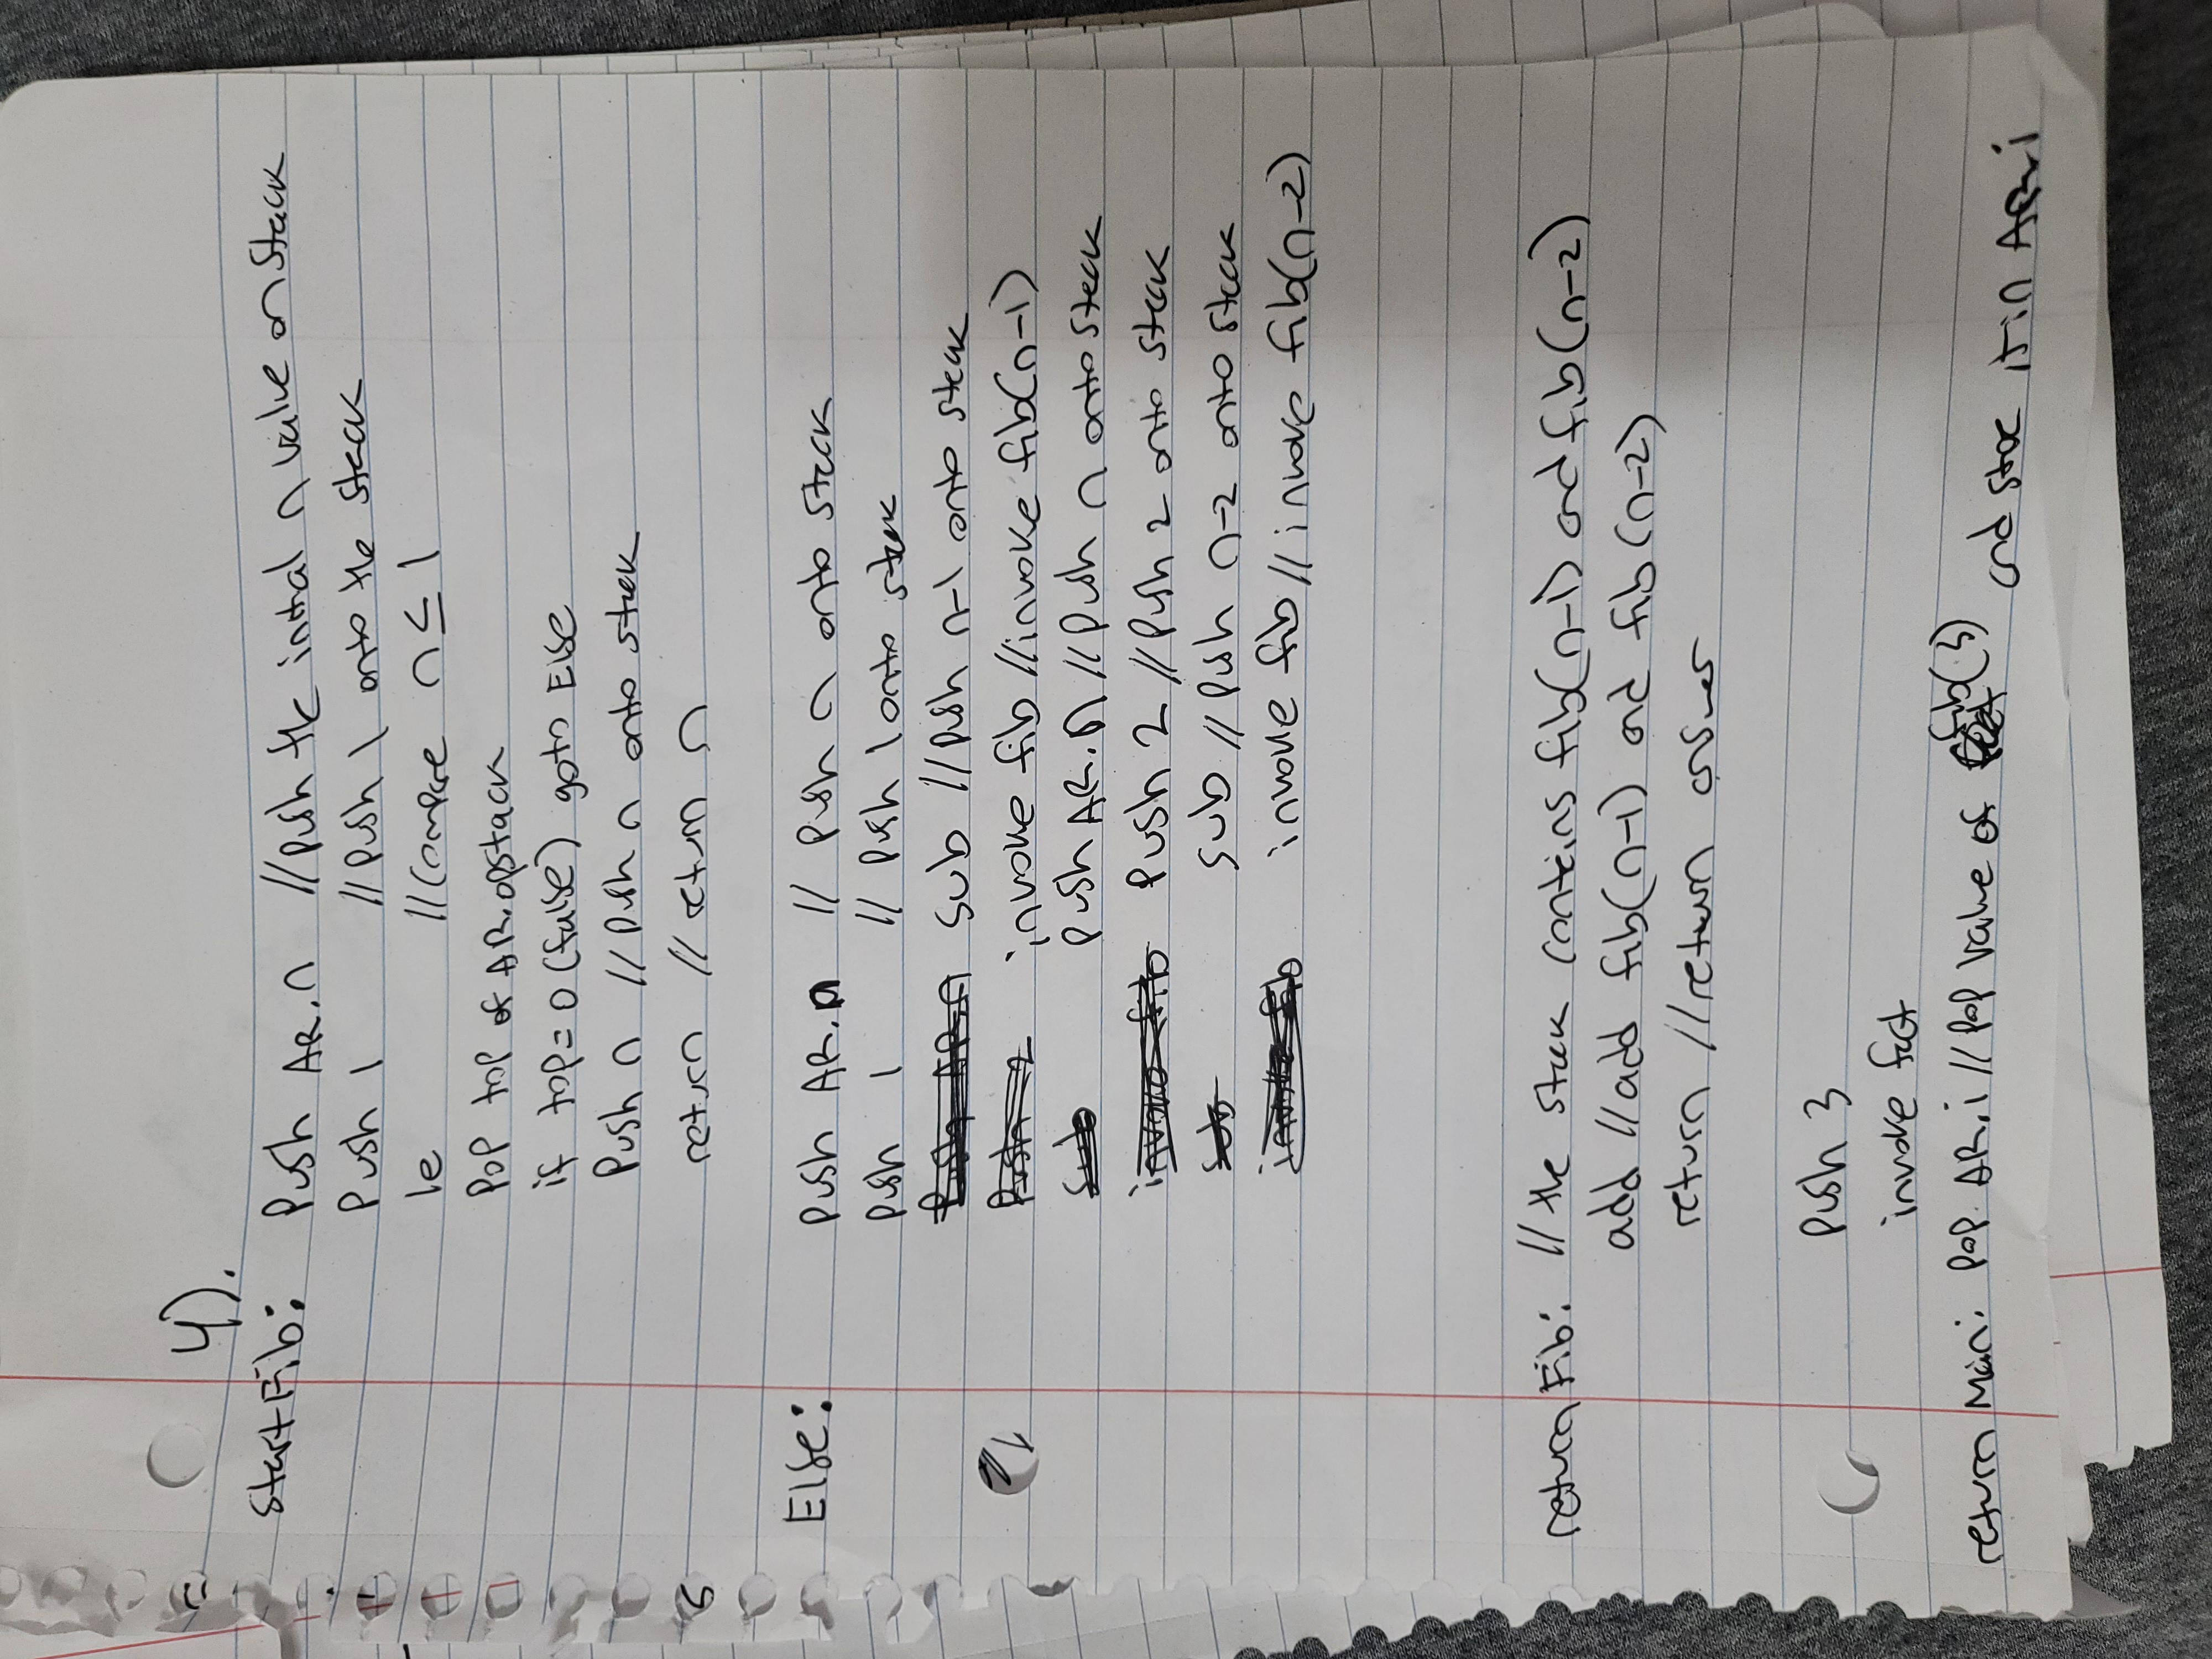 4).
StartFib: Push AR.n //Push the initial n value on Stack
Push 1 //Push 1 onto the stack
le //Compare n ≤ 1
Pop top of AR.opstack
if top=0 (false) goto Else
Push n //Push n onto stack
return //return n
Else: Push AR.n // Push n onto stack
Push 1 // Push 1 onto stack
Push AR.n sub //Push n-1 onto stack
Push 2 invoke fib //invoke fib(n-1)
sub Push AR.n //Push n onto stack
invoke fib Push 2 //Push 2 onto stack
sub sub //Push n-2 onto stack
invoke fib invoke fib //invoke fib(n-2)
return Fib: //the stack contains fib(n-1) and fib(n-2)
add //add fib(n-1) and fib(n-2)
return //return answer
Push 3
invoke fact
return Main: Pop AR.i //Pop value of fib(3) and store it in AR.i